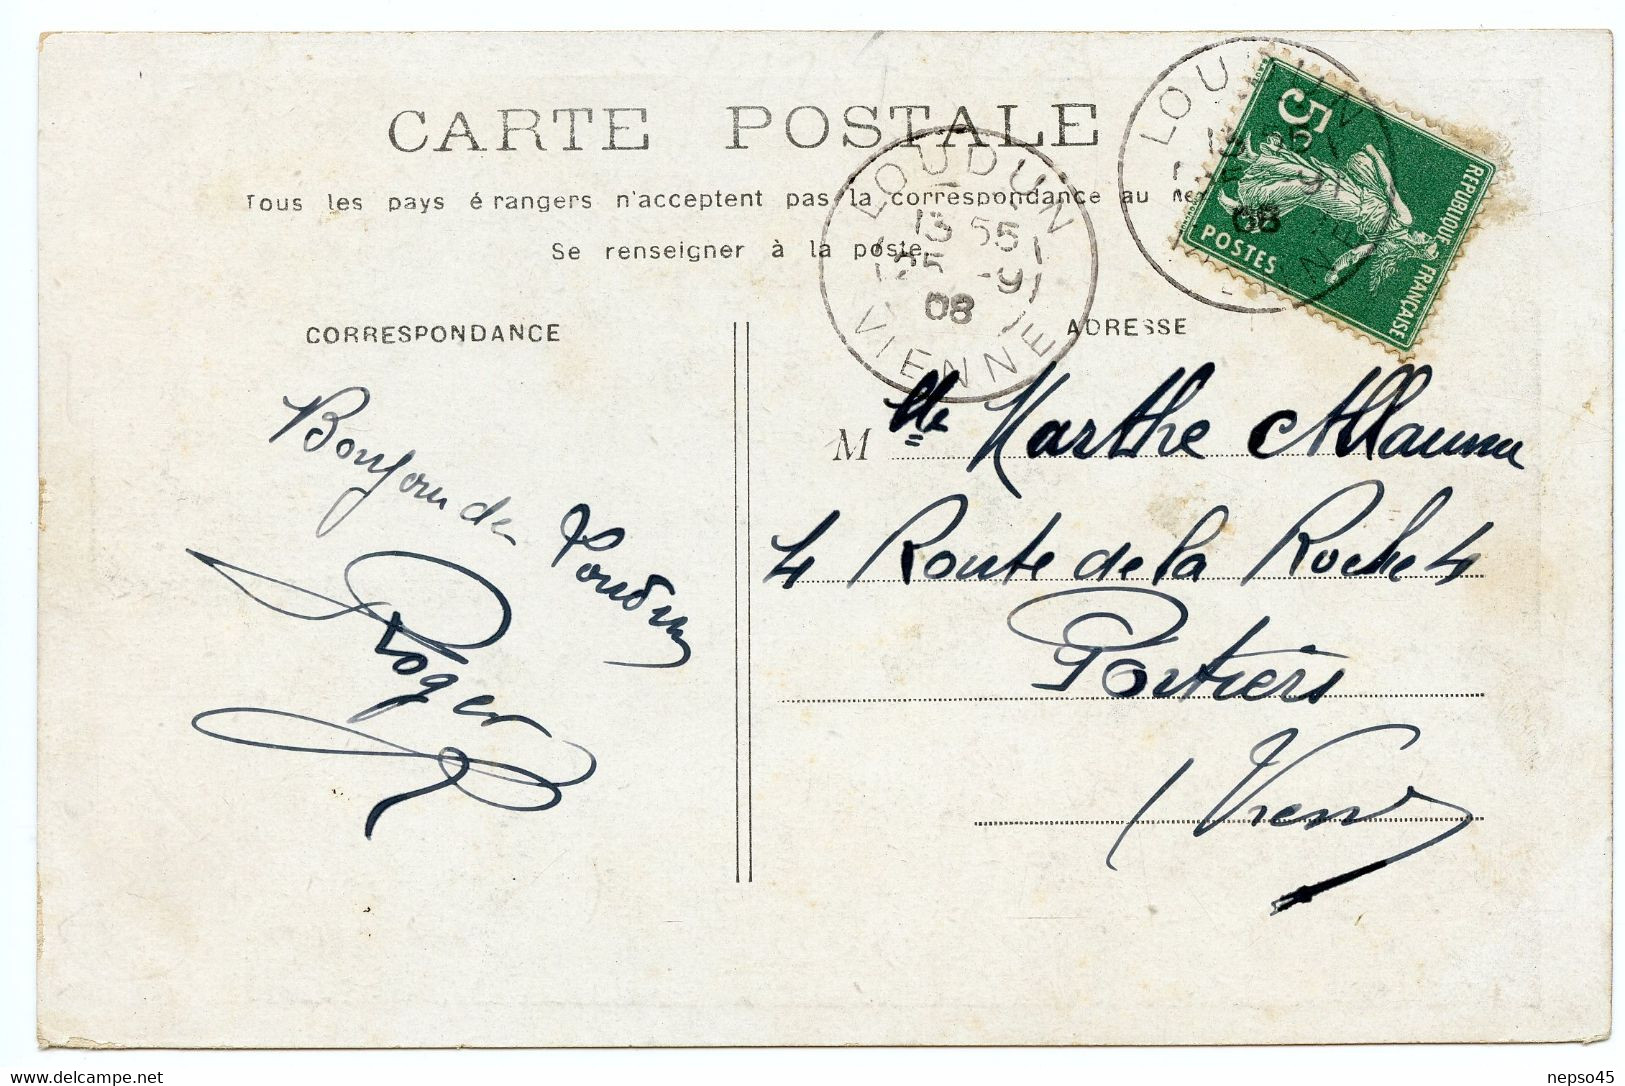 CARTE POSTALE
Tous les pays é rangers n'acceptent pas la correspondance au
Se renseigner à la poste.
CORRESPONDANCE
Bonjour de
Loudun
Roger
LOUDUN
13 55
08
VIENNE
LOUDUN
13 55
08
5
POSTES
REPUBLIQUE FRANÇAISE
ADRESSE
Mlle Marthe Allaume
4 Route de la Roche 4
Poitiers
Vienne
delcampe.net
nepso45